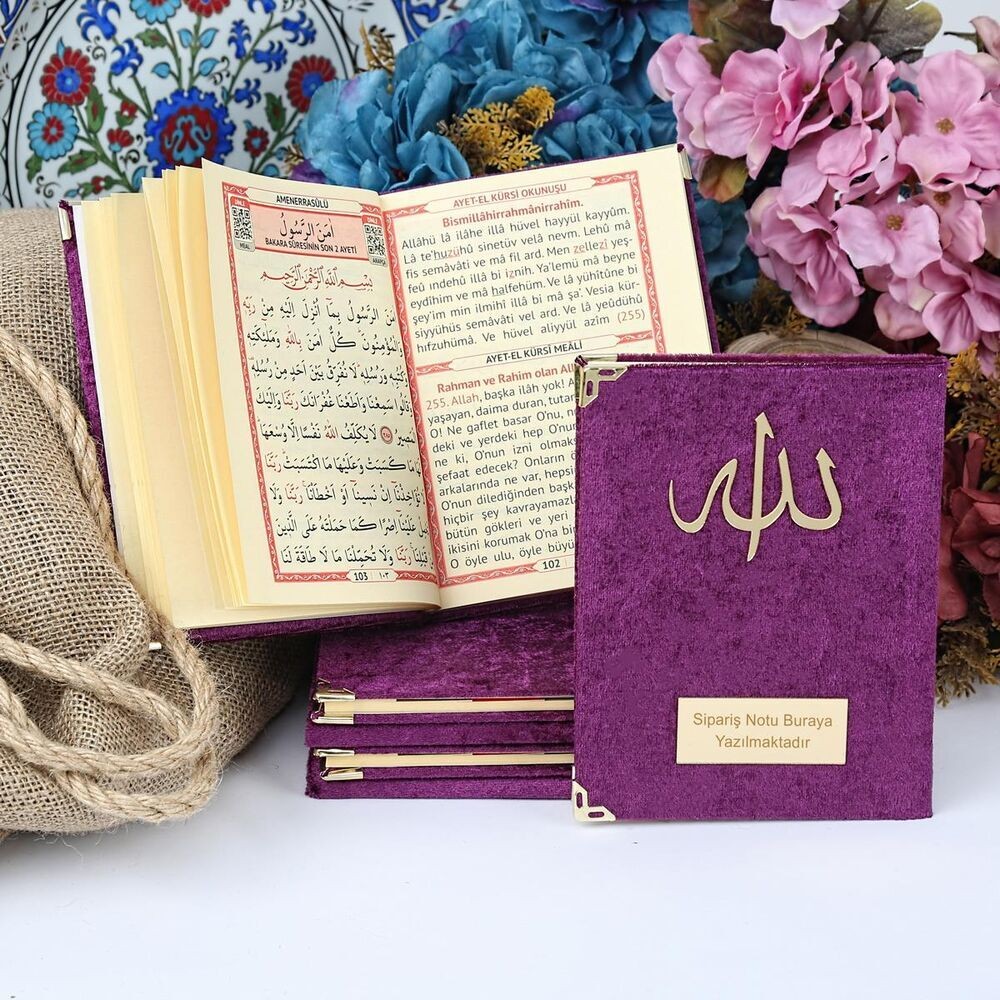 AMENERRASÛLÜ
DİNLE
MEAL
اٰمَنَ الرَّسُولُ
BAKARA SÛRESİNİN SON 2 AYETİ
DİNLE
ARAPÇA
بِسْمِ اللّٰهِ الرَّحْمٰنِ الرَّحِيمِ
اٰمَنَ الرَّسُولُ بِمَٓا اُنْزِلَ اِلَيْهِ مِنْ رَبِّهِ
وَالْمُؤْمِنُونَ كُلٌّ اٰمَنَ بِاللّٰهِ وَمَلٰٓئِكَتِهِ
وَكُتُبِهِ وَرُسُلِهِ لَا نُفَرِّقُ بَيْنَ اَحَدٍ مِنْ رُسُلِهِ
وَقَالُوا سَمِعْنَا وَاَطَعْنَا غُفْرَانَكَ رَبَّنَا وَاِلَيْكَ
الْمَصِيرُ ﴿٢٨٥﴾ لَا يُكَلِّفُ اللّٰهُ نَفْسًا اِلَّا وُسْعَهَا
مَا كَسَبَتْ وَعَلَيْهَا مَا اكْتَسَبَتْ رَبَّنَا
تُؤَاخِذْنَٓا اِنْ نَسِينَٓا اَوْ اَخْطَاْنَا رَبَّنَا وَلَا
عَلَيْنَٓا اِصْرًا كَمَا حَمَلْتَهُ عَلَى الَّذِينَ
قَبْلِنَا رَبَّنَا وَلَا تُحَمِّلْنَا مَا لَا طَاقَةَ لَنَا
103 ١٠٣
AYET-EL KÜRSÎ OKUNUŞU
Bismillâhirrahmânirrahîm.
Allâhü lâ ilâhe illâ hüvel hayyül kayyûm.
Lâ te'huzühû sinetüv velâ nevm. Lehû mâ
fis semâvâti ve mâ fil ard. Men zellezî yeş-
feû ındehû illâ bi iznih. Ya'lemü mâ beyne
eydîhim ve mâ halfehüm. Ve lâ yühîtûne bi
şey'im min ilmihî illâ bi mâ şa'. Vesia kür-
siyyühüs semâvâti vel ard. Ve lâ yeûdühû
hıfzuhümâ. Ve hüvel aliyyül azîm (255)
AYET-EL KÜRSÎ MEÂLİ
Rahman ve Rahim olan All
255. Allah, başka ilâh yok!
yaşayan, daima duran, tutan
O! Ne gaflet basar O'nu, n
deki ve yerdeki hep O'nun
ne ki, O'nun izni olmaks
şefaat edecek? Onların ö
arkalarında ne var, hepsi
O'nun dilediğinden başk
hiçbir şey kavrayamazl
bütün gökleri ve yeri
ikisini korumak O'na bi
O öyle ulu, öyle büyü
102
الله
Sipariş Notu Buraya
Yazılmaktadır